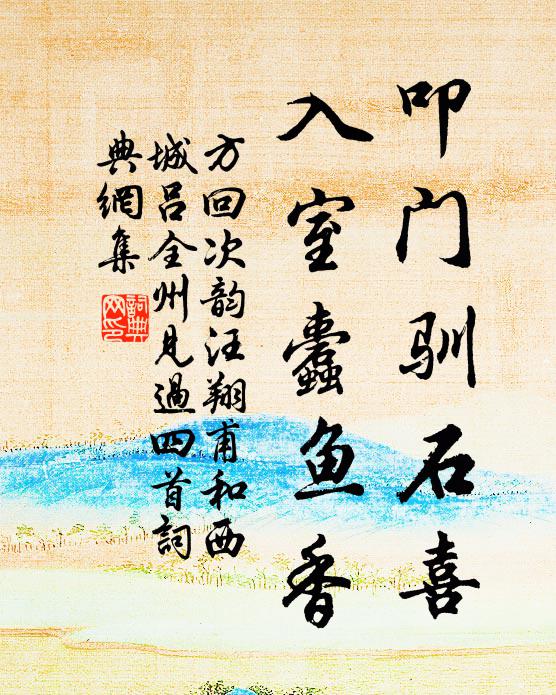 叩门驯石喜
入室蠹鱼香
方回次韵汪翔甫和西
城吕全州见过四首词
典網集
詞典網印